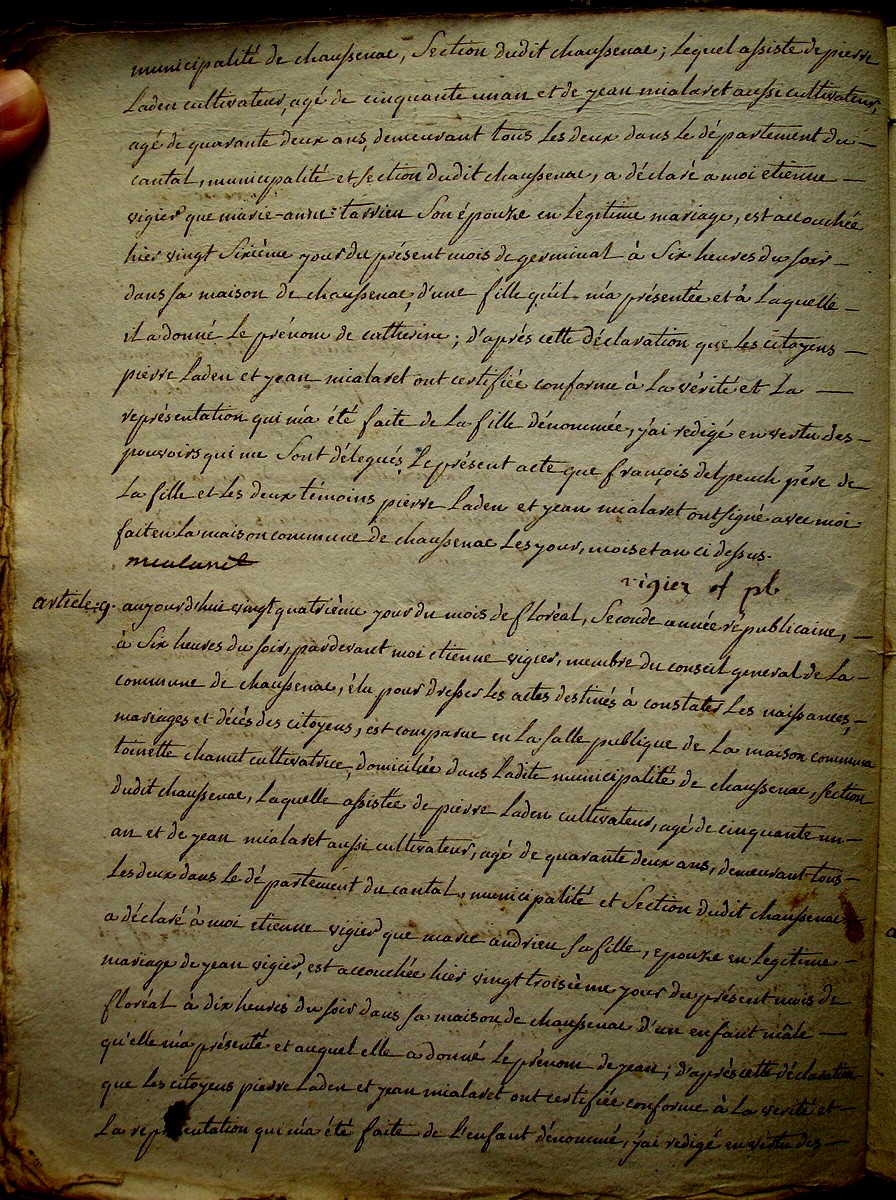 municipalité de chaussenac, Section dudit chaussenac; Lequel assisté de pierre
Laden cultivateur, agé de cinquante un an et de jean mialaret aussi cultivateur,
agé de quarante deux ans, demeurant tous les deux dans le département du —
cantal, municipalité et section dudit chaussenac, a déclaré a moi etienne —
vigier que marie-anne tarrieu Son épouze en Legitime mariage, est accouchée
hier vingt Sixième jour du présent mois de germinal à Six heures du soir —
dans sa maison de chaussenac, d'une fille quil m'a présentée et à Laquelle —
il a donné Le prénom de catherine; d'après cette déclaration que les citoyens —
pierre Laden et jean mialaret ont certifiée conforme à La vérité et La —
représentation qui m'a été faite de La fille dénommée, j'ai redigé en vertu des —
pouvoirs qui me Sont délegués, Le présent acte que françois delpeuch père de
La fille et Les deux témoins pierre Laden et jean mialaret ont signé avec moi
fait en La maison commune de chaussenac Les jour, mois et an ci dessus.
mialaret
vigier of pb
article: 9. aujourd'hui vingt quatrième jour du mois de floréal, Seconde année républicaine, —
à Six heures du soir, pardevant moi etienne vigier, membre du conseil general de La —
commune de chaussenac, élu pour dresser Les actes destinés à constater Les naissances, —
mariages et décès des citoyens, est comparue en La salle publique de La maison commune
toinette chamet cultivatrice, domiciliée dans Ladite municipalité de chaussenac, section
dudit chaussenac, Laquelle assistée de pierre Laden cultivateur, agé de cinquante un —
an et de jean mialaret aussi cultivateur, agé de quarante deux ans, demeurant tous —
Les deux dans Le département du cantal, municipalité et Section dudit chaussenac —
a déclaré à moi etienne vigier que marie andrieu sa fille, epouze en Legitime —
mariage de jean vigier, est accouchée hier vingt troisième jour du présent mois de
floréal à dix heures du soir dans sa maison de chaussenac d'un enfant mâle —
qu'elle m'a présenté et auquel elle a donné Le prénom de jean; d'après cette déclaration
que Les citoyens pierre Laden et jean mialaret ont certifiée conforme à La verité et —
La représentation qui m'a été faite de L'enfant dénommé, j'ai redigé en vertu des —